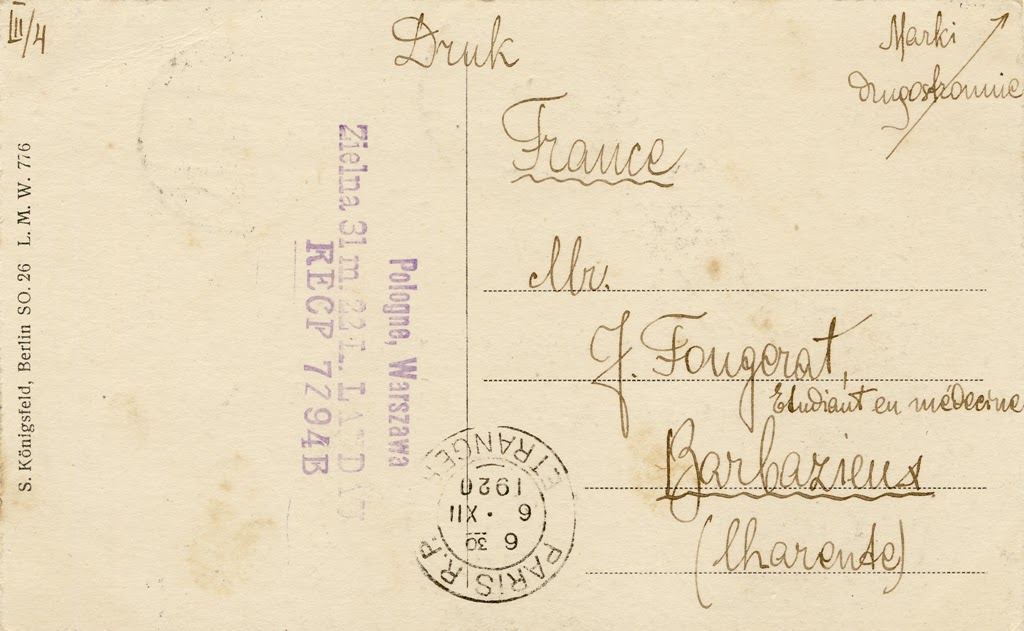 III/4
Druk
Marki
drugostronnie
France
Mr.
J. Fougerat,
Etudiant en médecine
Barbazieux
(Charente)
S. Königsfeld, Berlin SO. 26 L. M. W. 776
Pologne, Warszawa
Zielna 31 m. 22 L.
RECP 7294B
PARIS R.P.
6 30
6 • XII
1920
ETRANGER